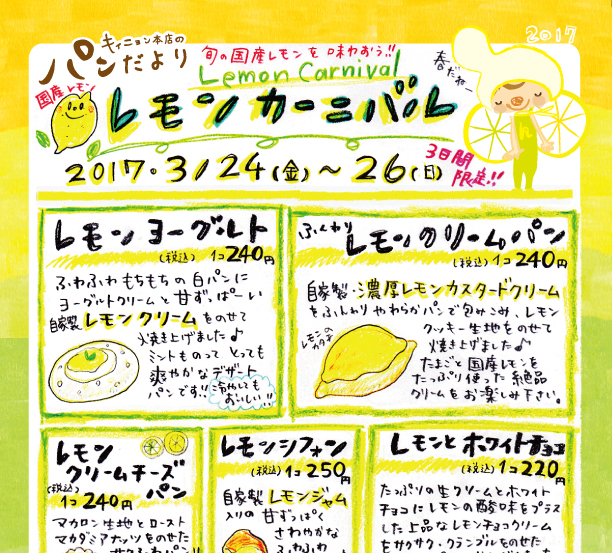 2017
キィニョン本店の
パンだより
旬の国産レモンを味わおう!!
Lemon Carnival
春だねー
国産レモン
レモンカーニバル
ん
2017.3/24(金)〜26(日)
3日間
限定!!
レモンヨーグルト
(税込)1コ240円
ふわふわもちもちの白パンに
ヨーグルトクリームと甘ずっぱーい
自家製レモンクリームをのせて
焼き上げました♪
ミントものって、とっても
爽やかなデザート
パンです!!
冷やしても
おいしい!!
ふんわり
レモンクリームパン
(税込)1コ240円
自家製・濃厚レモンカスタードクリーム
をふんわりやわらかパンで包みこみ、レモン
クッキー生地をのせて
焼き上げました♪
レモンの
カタチ
たまごと国産レモンを
たっぷり使った絶品
クリームをお楽しみ下さい。
レモン
クリームチーズ
パン
(税込)
1コ240円
マカロン生地とロースト
マカダミアナッツをのせた
レモンシフォン
(税込)1コ250円
自家製レモンジャム
入りの甘ずっぱく
さわやかな
ふわふわ
レモンとホワイトチョコ
(税込)1コ220円
たっぷりの生クリームとホワイト
チョコにレモンの酸味をプラス
した上品なレモンチョコクリーム
をサクサク・クランブルをのせた